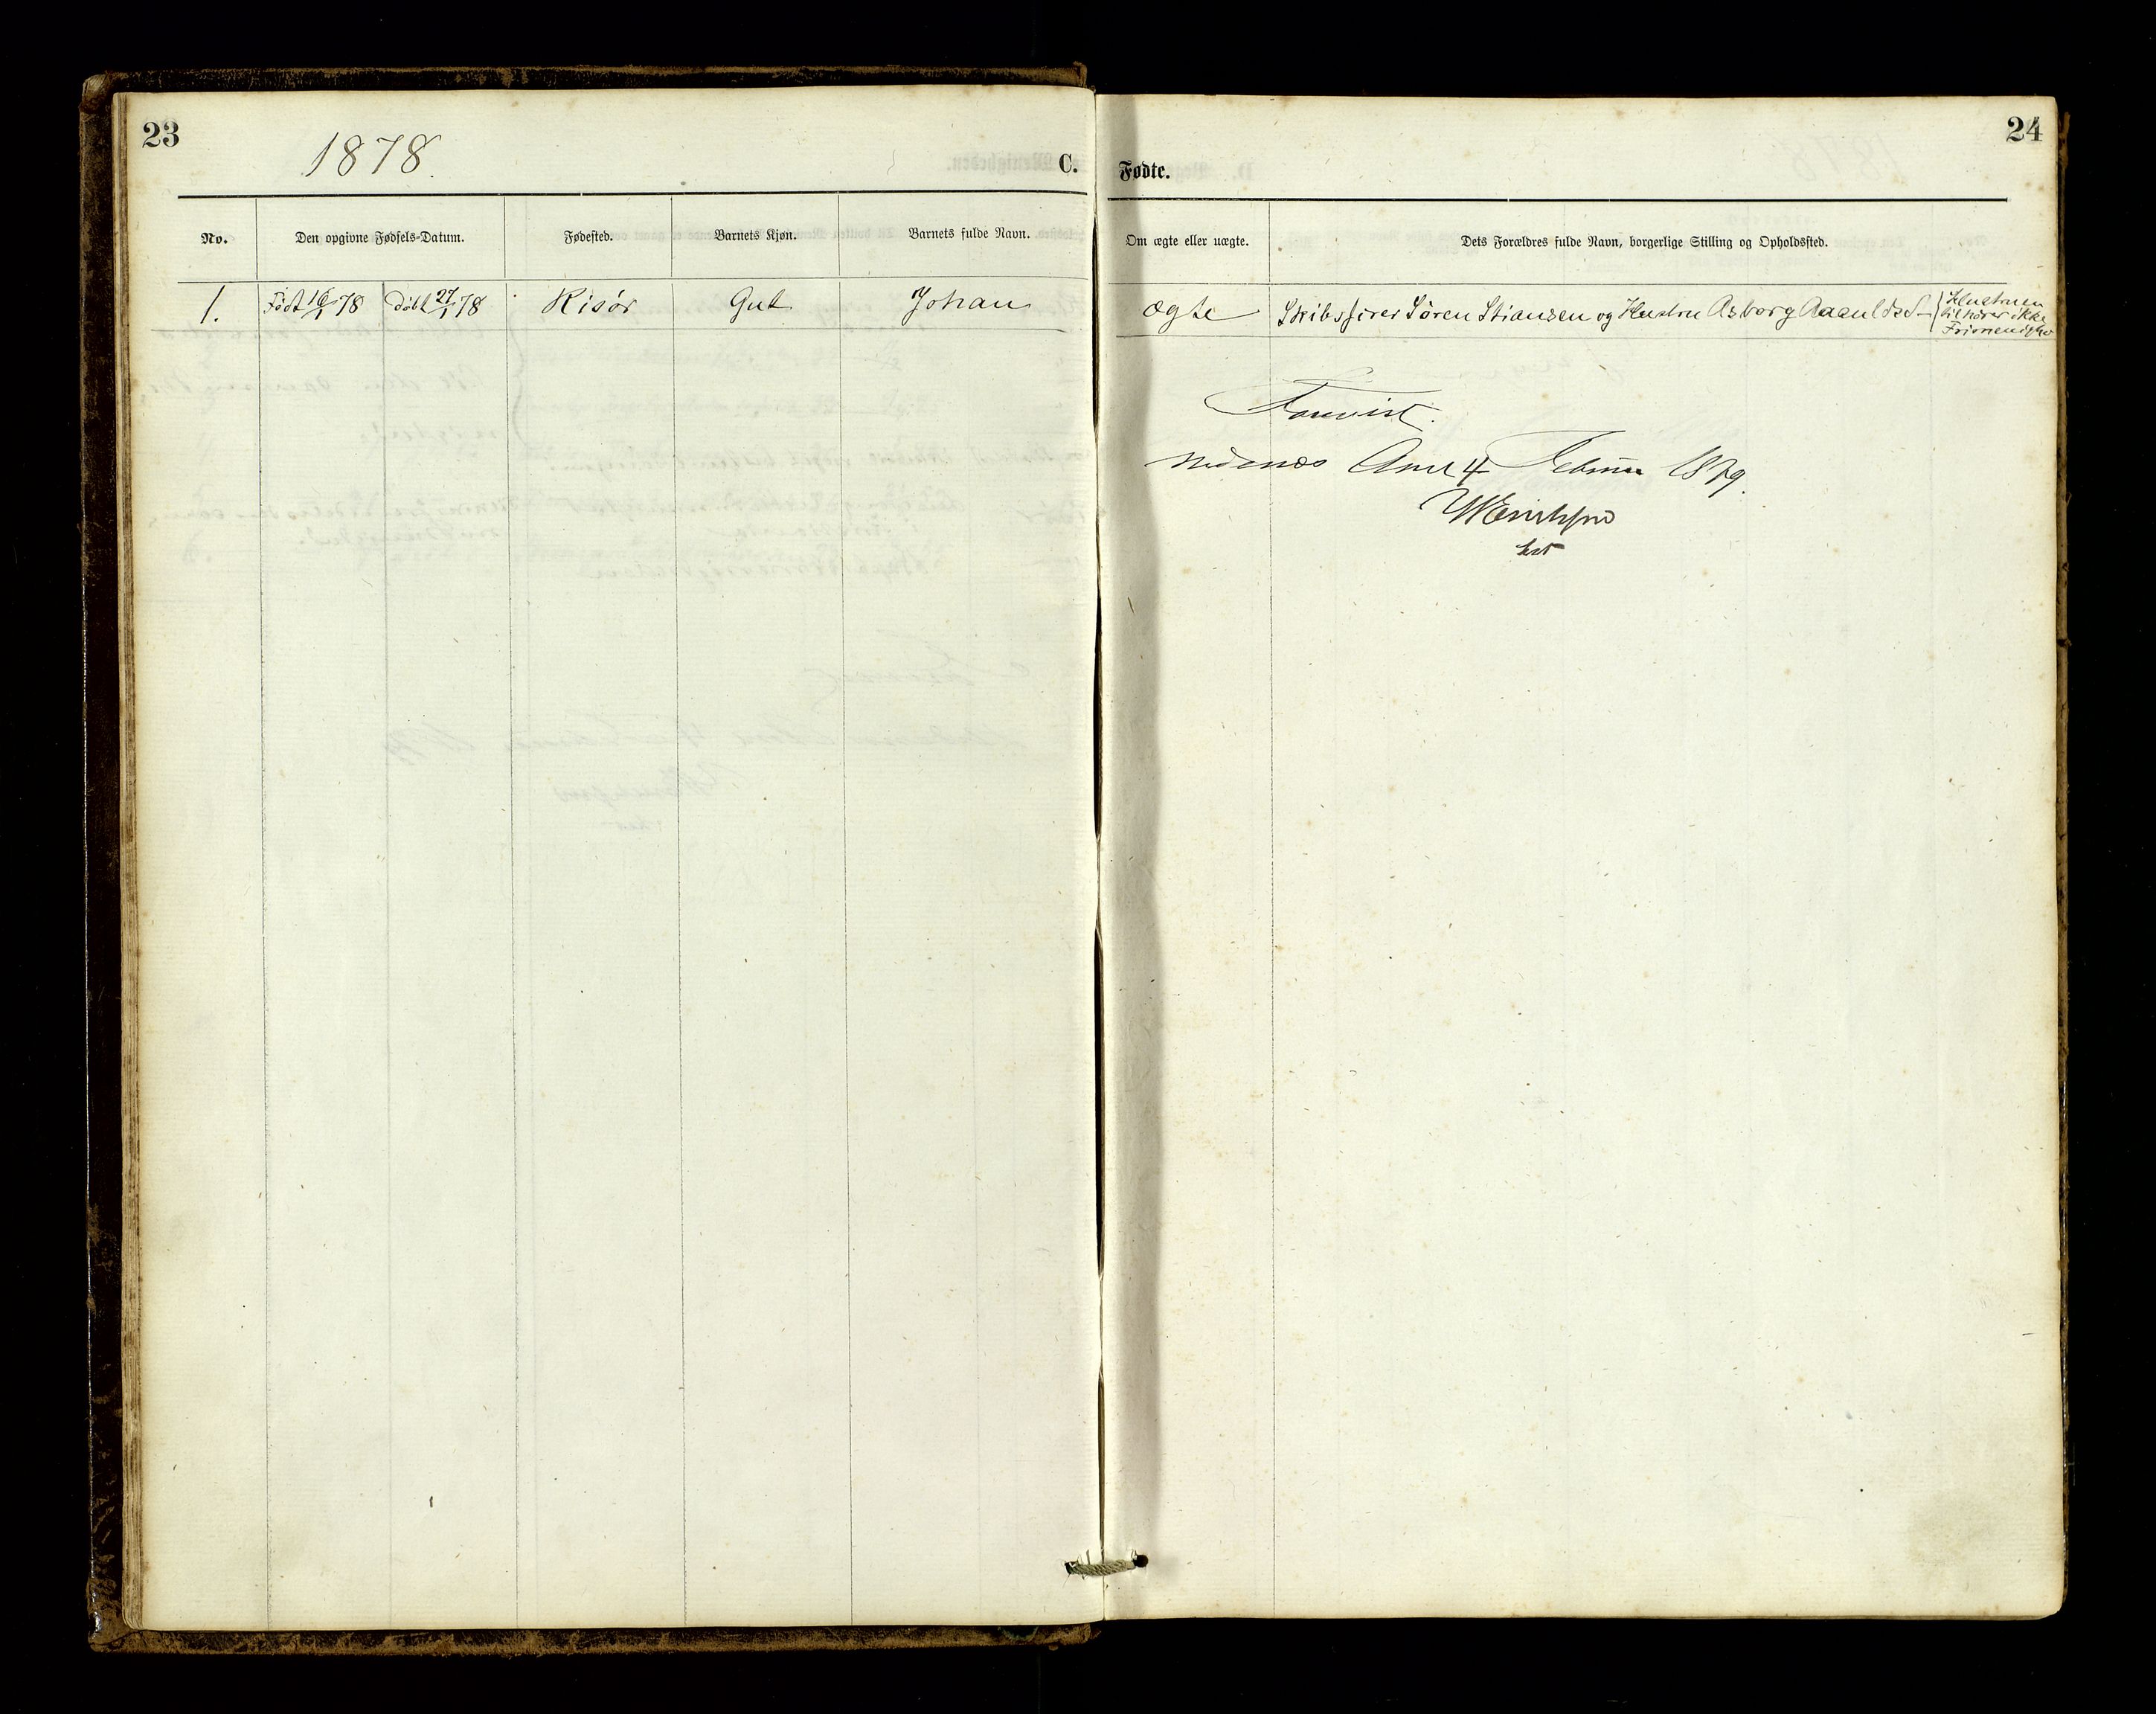 23
1878.
C.
No.
Den opgivne Fødsels-Datum.
Fødested.
Barnets Kjøn.
Barnets fulde Navn.
1.
Født 16/1 78
Døbt 27/1 78
Risör
Gut
Johan
24
Fødte.
Om ægte eller uægte.
Dets Forældres fulde Navn, borgerlige Stilling og Opholdssted.
Ægte
Skibsfører Sören Stiansen og Hustru Asborg
Hustruen
tilhører ikke
Frimenighe
Forevist.
Nedenæs Amt 4 Februar 1879.